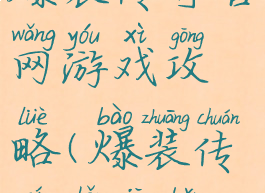 wǎng yóu xì gōng
网游戏攻
lüè bào zhuāng chuán
略(爆装传